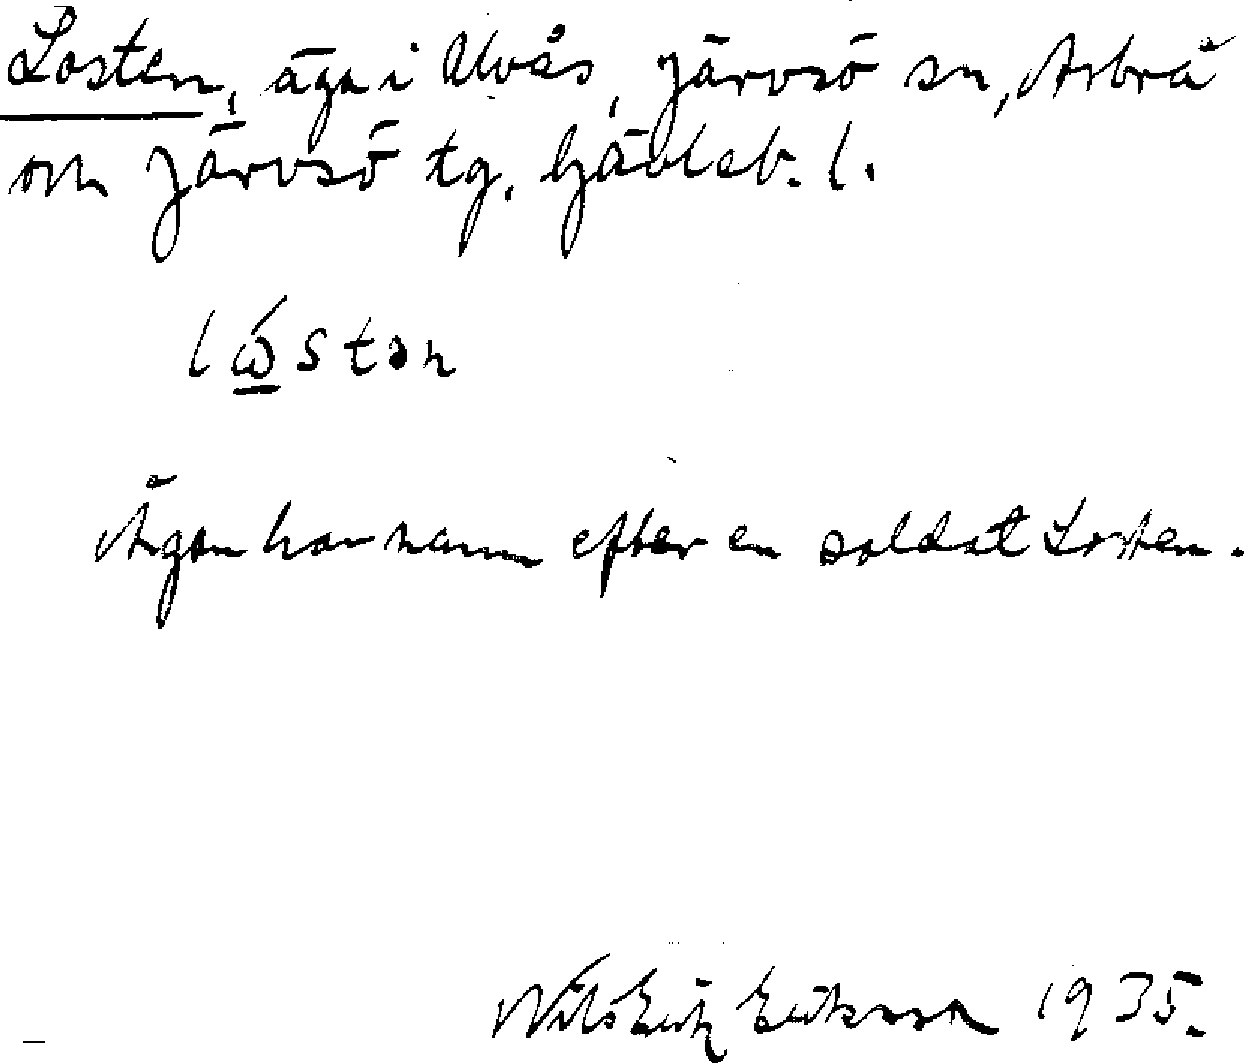 Losten, äga i Ulvås, Järvsö sn, Arbrå
och Järvsö tg. Gävleb. l.
lώ̲stən
Ägan har namn efter en soldat Losten.
Nils Erik Eriksson 1935.